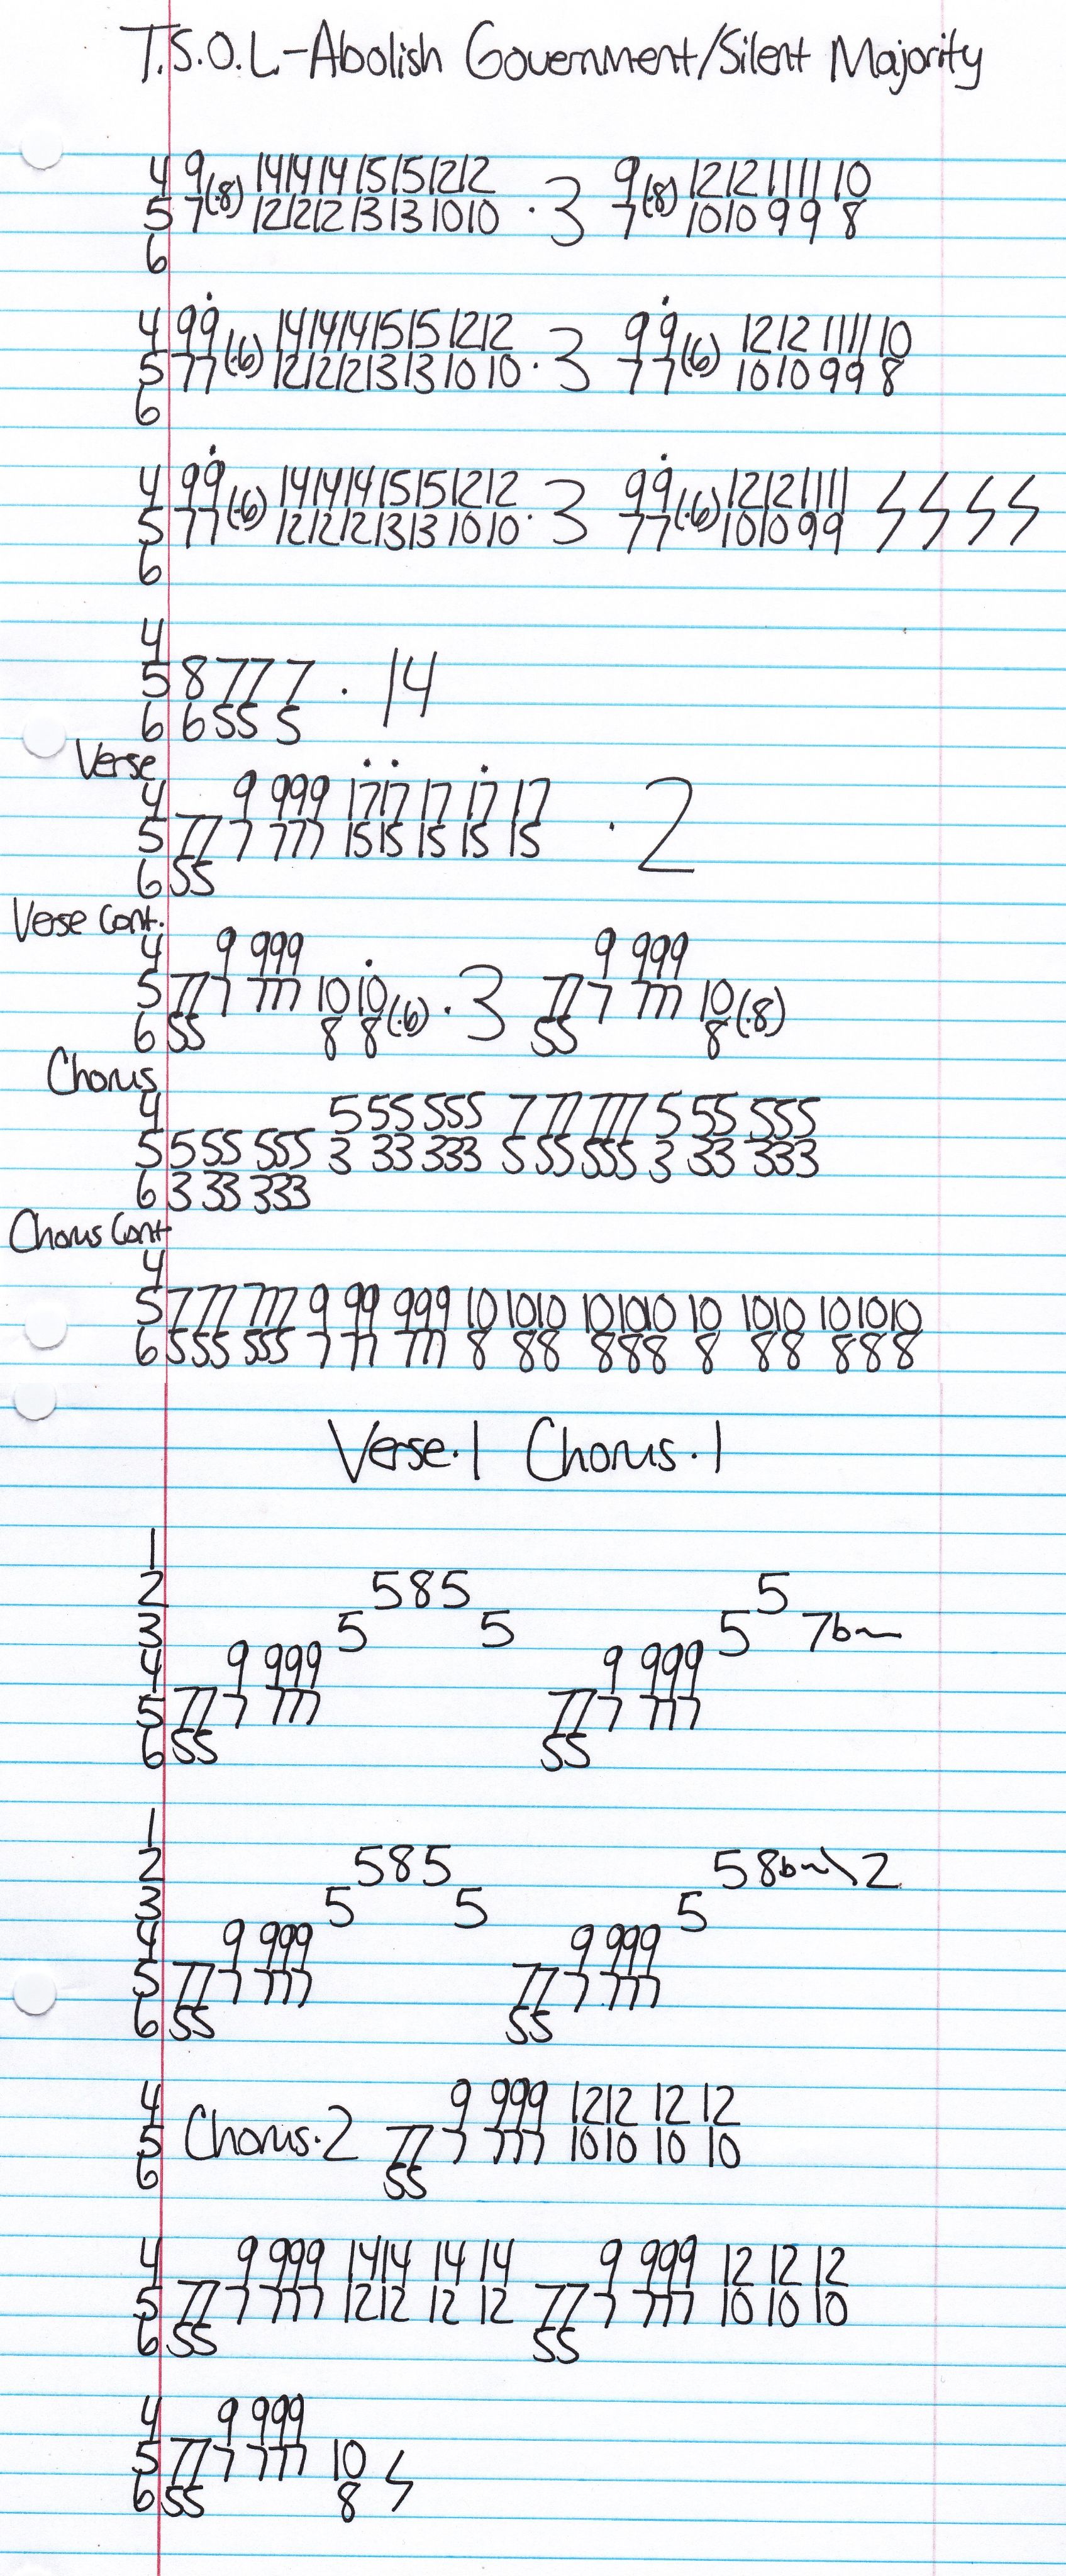 T.S.O.L.-Abolish Government/Silent Majority
4 9(.8) 14 14 14 15 15 12 12 9(.8) 12 12 11 11 10
5 7 12 12 12 13 13 10 10 . 3 7 10 10 9 9 8
6
4 9 9 (.6) 14 14 14 15 15 12 12 9 9 (.6) 12 12 11 11 10
5 7 7 12 12 12 13 13 10 10 . 3 7 7 10 10 9 9 8
6
4 9 9 (.6) 14 14 14 15 15 12 12 9 9 (.6) 12 12 11 11
5 7 7 12 12 12 13 13 10 10 . 3 7 7 10 10 9 9
6
4
5 8 7 7 7 . 14
6 6 5 5 5
Verse
4 9 999 17 17 17 17 17
5 77 7 777 15 15 15 15 15 . 2
6 55
Verse Cont.
4 9 999 9 999
5 77 7 777 10 10 (.6) . 3 77 7 777 10 (.8)
6 55 8 8 55 8
Chorus
4 5 55 555 7 77 777 5 55 555
5 5 55 555 3 33 333 5 55 555 3 33 333
6 3 33 333
Chorus Cont
4
5 7 77 777 9 99 999 10 1010 101010 10 1010 101010
6 5 55 555 7 77 777 8 88 888 8 88 888
Verse.1 Chorus.1
1
2 585 5
3 5 5 5 7b~
4 9 999 9 999
5 77 7 777 77 7 777
6 55 55
1
2 585 5 8b~\2
3 5 5 5
4 9 999 9 999
5 77 7 777 77 7 777
6 55 55
4 9 999 12 12 12 12
5 Chorus.2 77 7 777 10 10 10 10
6 55
4 9 999 14 14 14 14 9 999 12 12 12
5 77 7 777 12 12 12 12 77 7 777 10 10 10
6 55 55
4 9 999
5 77 7 777 10
6 55 8